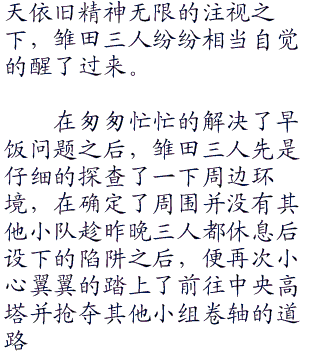 天依旧精神无限的注视之
下，雏田三人纷纷相当自觉
的醒了过来。
在匆匆忙忙的解决了早
饭问题之后，雏田三人先是
仔细的探查了一下周边环
境，在确定了周围并没有其
他小队趁昨晚三人都休息后
设下的陷阱之后，便再次小
心翼翼的踏上了前往中央高
塔并抢夺其他小组卷轴的道
路